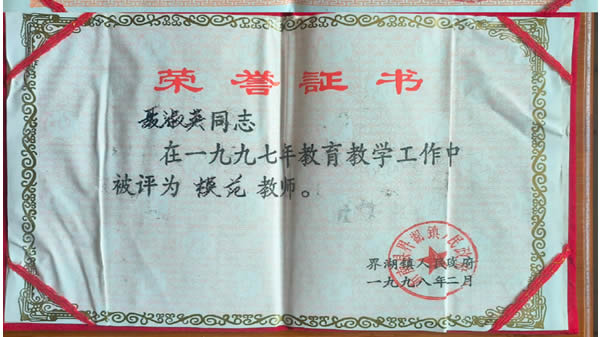 荣誉証书
聂淑英同志
在一九九七年教育教学工作中
被评为 模范 教师。
界湖镇人民政府
一九九八年二月